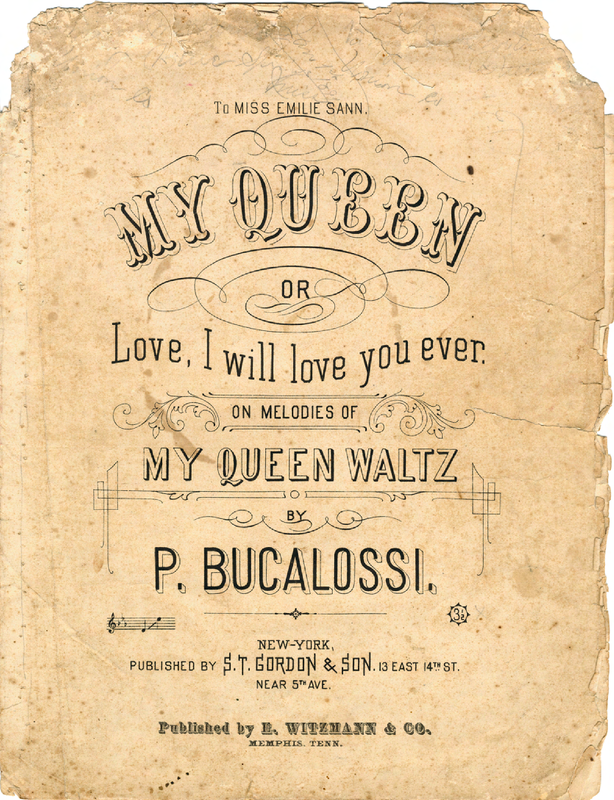 To MISS EMILIE SANN.
MY QUEEN
OR
Love, I will love you ever.
ON MELODIES OF
MY QUEEN WALTZ
BY
P. BUCALOSSI.
3½
NEW-YORK,
PUBLISHED BY S.T. GORDON & SON. 13 EAST 14TH ST.
NEAR 5TH AVE.
Published by E. WITZMANN & CO.
MEMPHIS. TENN.